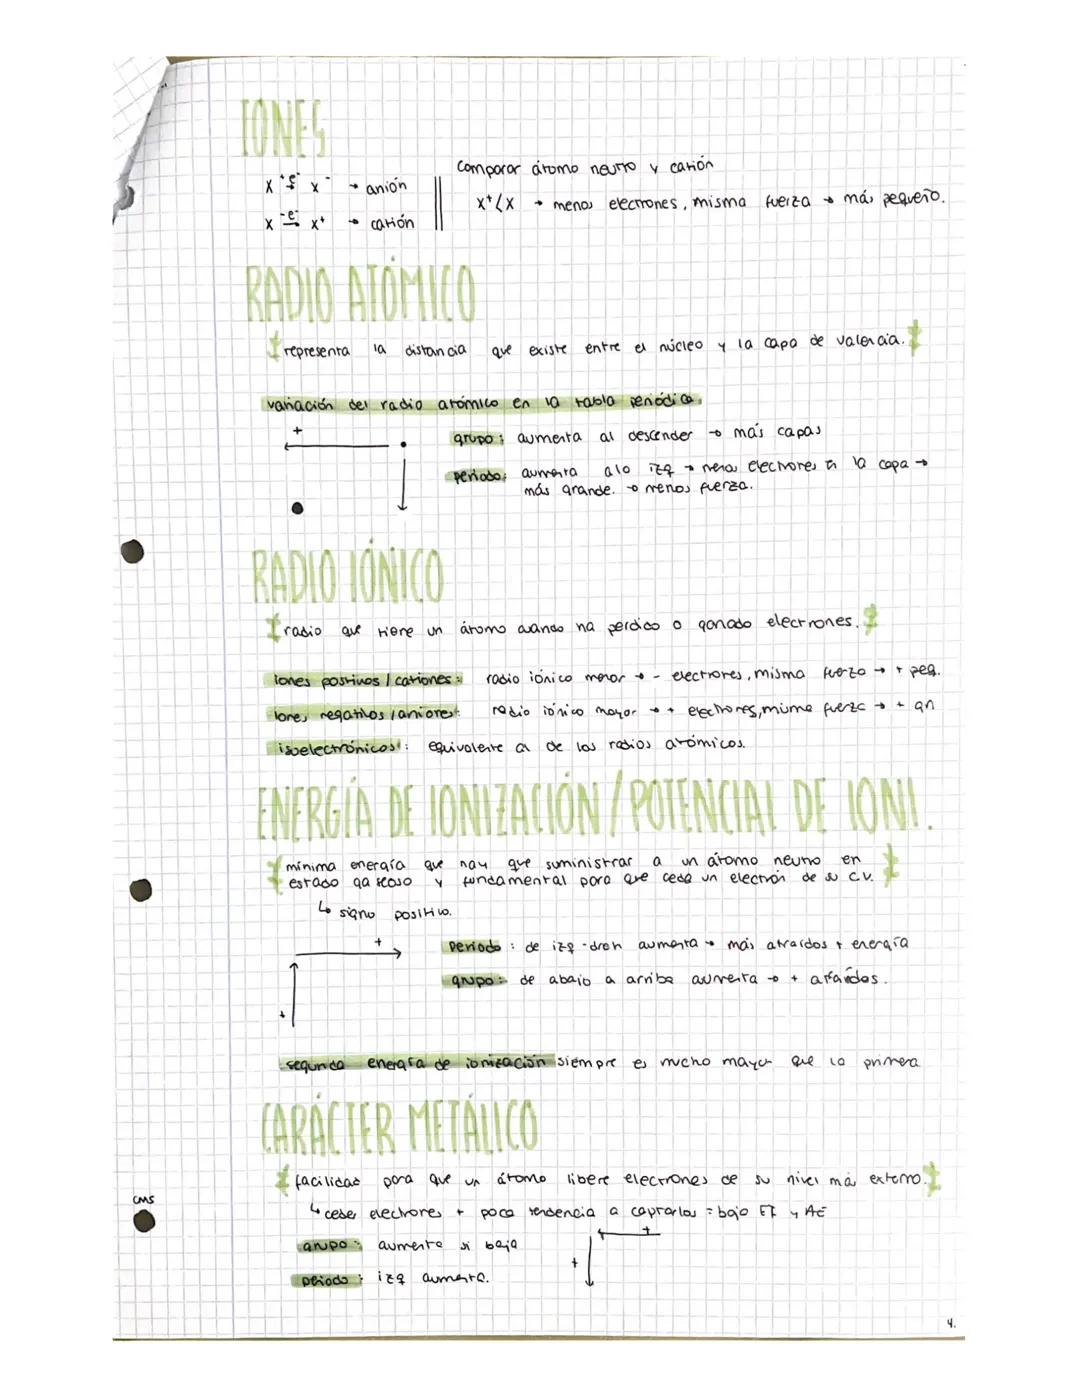 IONES
x +e⁻→ x⁻ → anión
x -e⁻→ x⁺ → catión
Comparar átomo neutro y catión
x⁺<x → menos electrones, misma fuerza → más pequeño.
RADIO ATÓMICO
* representa la distancia que existe entre el núcleo y la capa de valencia. *
variación del radio atómico en la tabla periódica.
+
grupo: aumenta al descender → más capas
periodo: aumenta a lo izq → menos electrones en la capa →
más grande. → menos fuerza.
RADIO IÓNICO
* radio que tiene un átomo cuando ha perdido o ganado electrones. *
iones positivos / cationes: radio iónico menor → - electrones, misma fuerza → + peq.
iones negativos / aniones: radio iónico mayor → + electrones, misma fuerza → + gn
isoelectrónicos: equivalente a de los radios atómicos.
ENERGÍA DE IONIZACIÓN / POTENCIAL DE IONI.
* mínima energía que hay que suministrar a un átomo neutro en
estado gaseoso y fundamental para que ceda un electrón de su c.v. *
↳ signo positivo.
+
periodo: de izq - drch aumenta → más atraídos + energía
grupo: de abajo a arriba aumenta → + atraídos.
+
segunda energía de ionización siempre es mucho mayor que la primera
CARÁCTER METÁLICO
* facilidad para que un átomo libere electrones de su nivel más externo. *
↳ ceder electrones + poca tendencia a captarlos = bajo EI y AE
grupo: aumenta si baja
+
+
periodo: izq aumenta.
CMS
4.